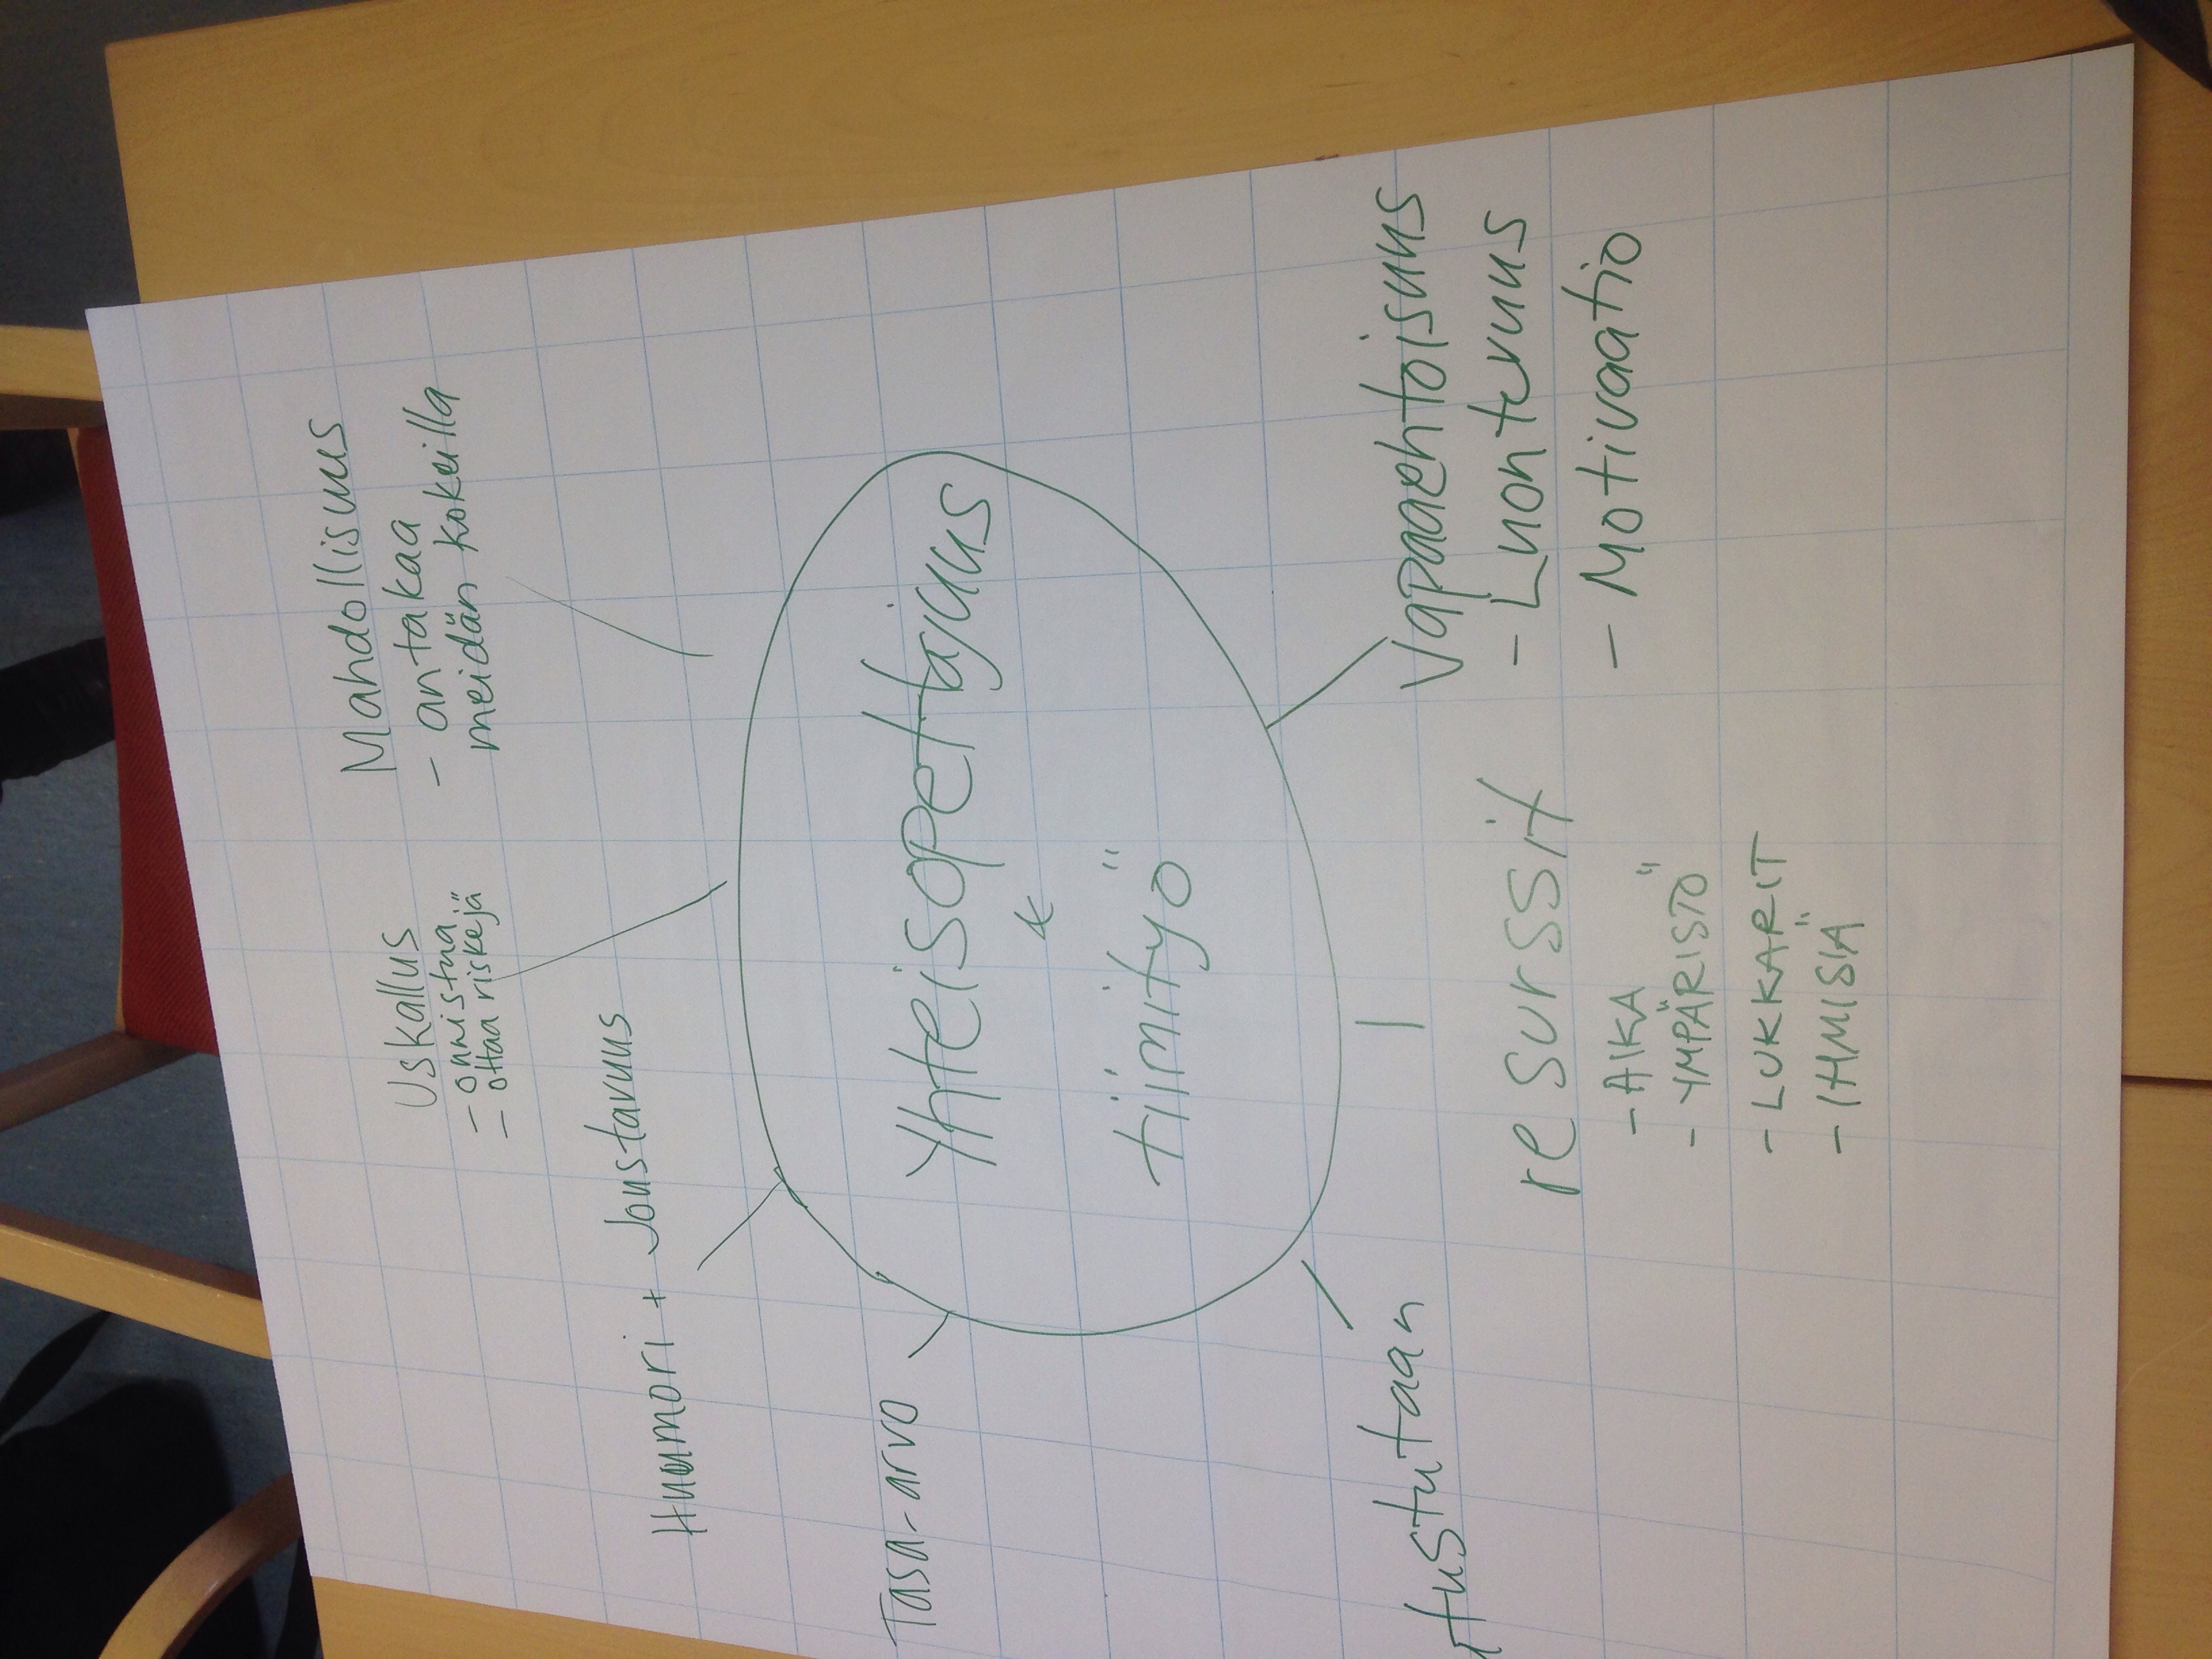 Mahdollisuus
- antakaa
meidän kokeilla
Uskallus
- onnistua
- ottaa riskejä
Huumori + Joustavuus
Tasa-arvo
Yhteisopettajuus
&
tiimityö
Vapaaehtoisuus
- Luontevuus
- Motivaatio
resurssit
- AIKA
- YMPÄRISTÖ
- LUKKARIT
- IHMISIÄ